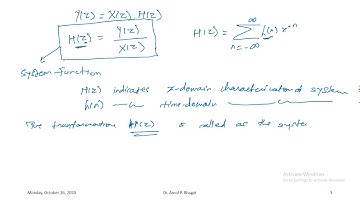 Y(z) = X(z) . H(z)
H(z) = Y(z) / X(z)
H(z) = ∑ h(n) z⁻ⁿ
n=-∞
∞
system function
H(z) indicates z-domain characterization of system
h(n) —〃— time-domain —〃—
The transformation H(z) is called as the system
Activate Windows
Go to Settings to activate Windows.
Monday, October 26, 2020
Dr. Amol P. Bhagat
3